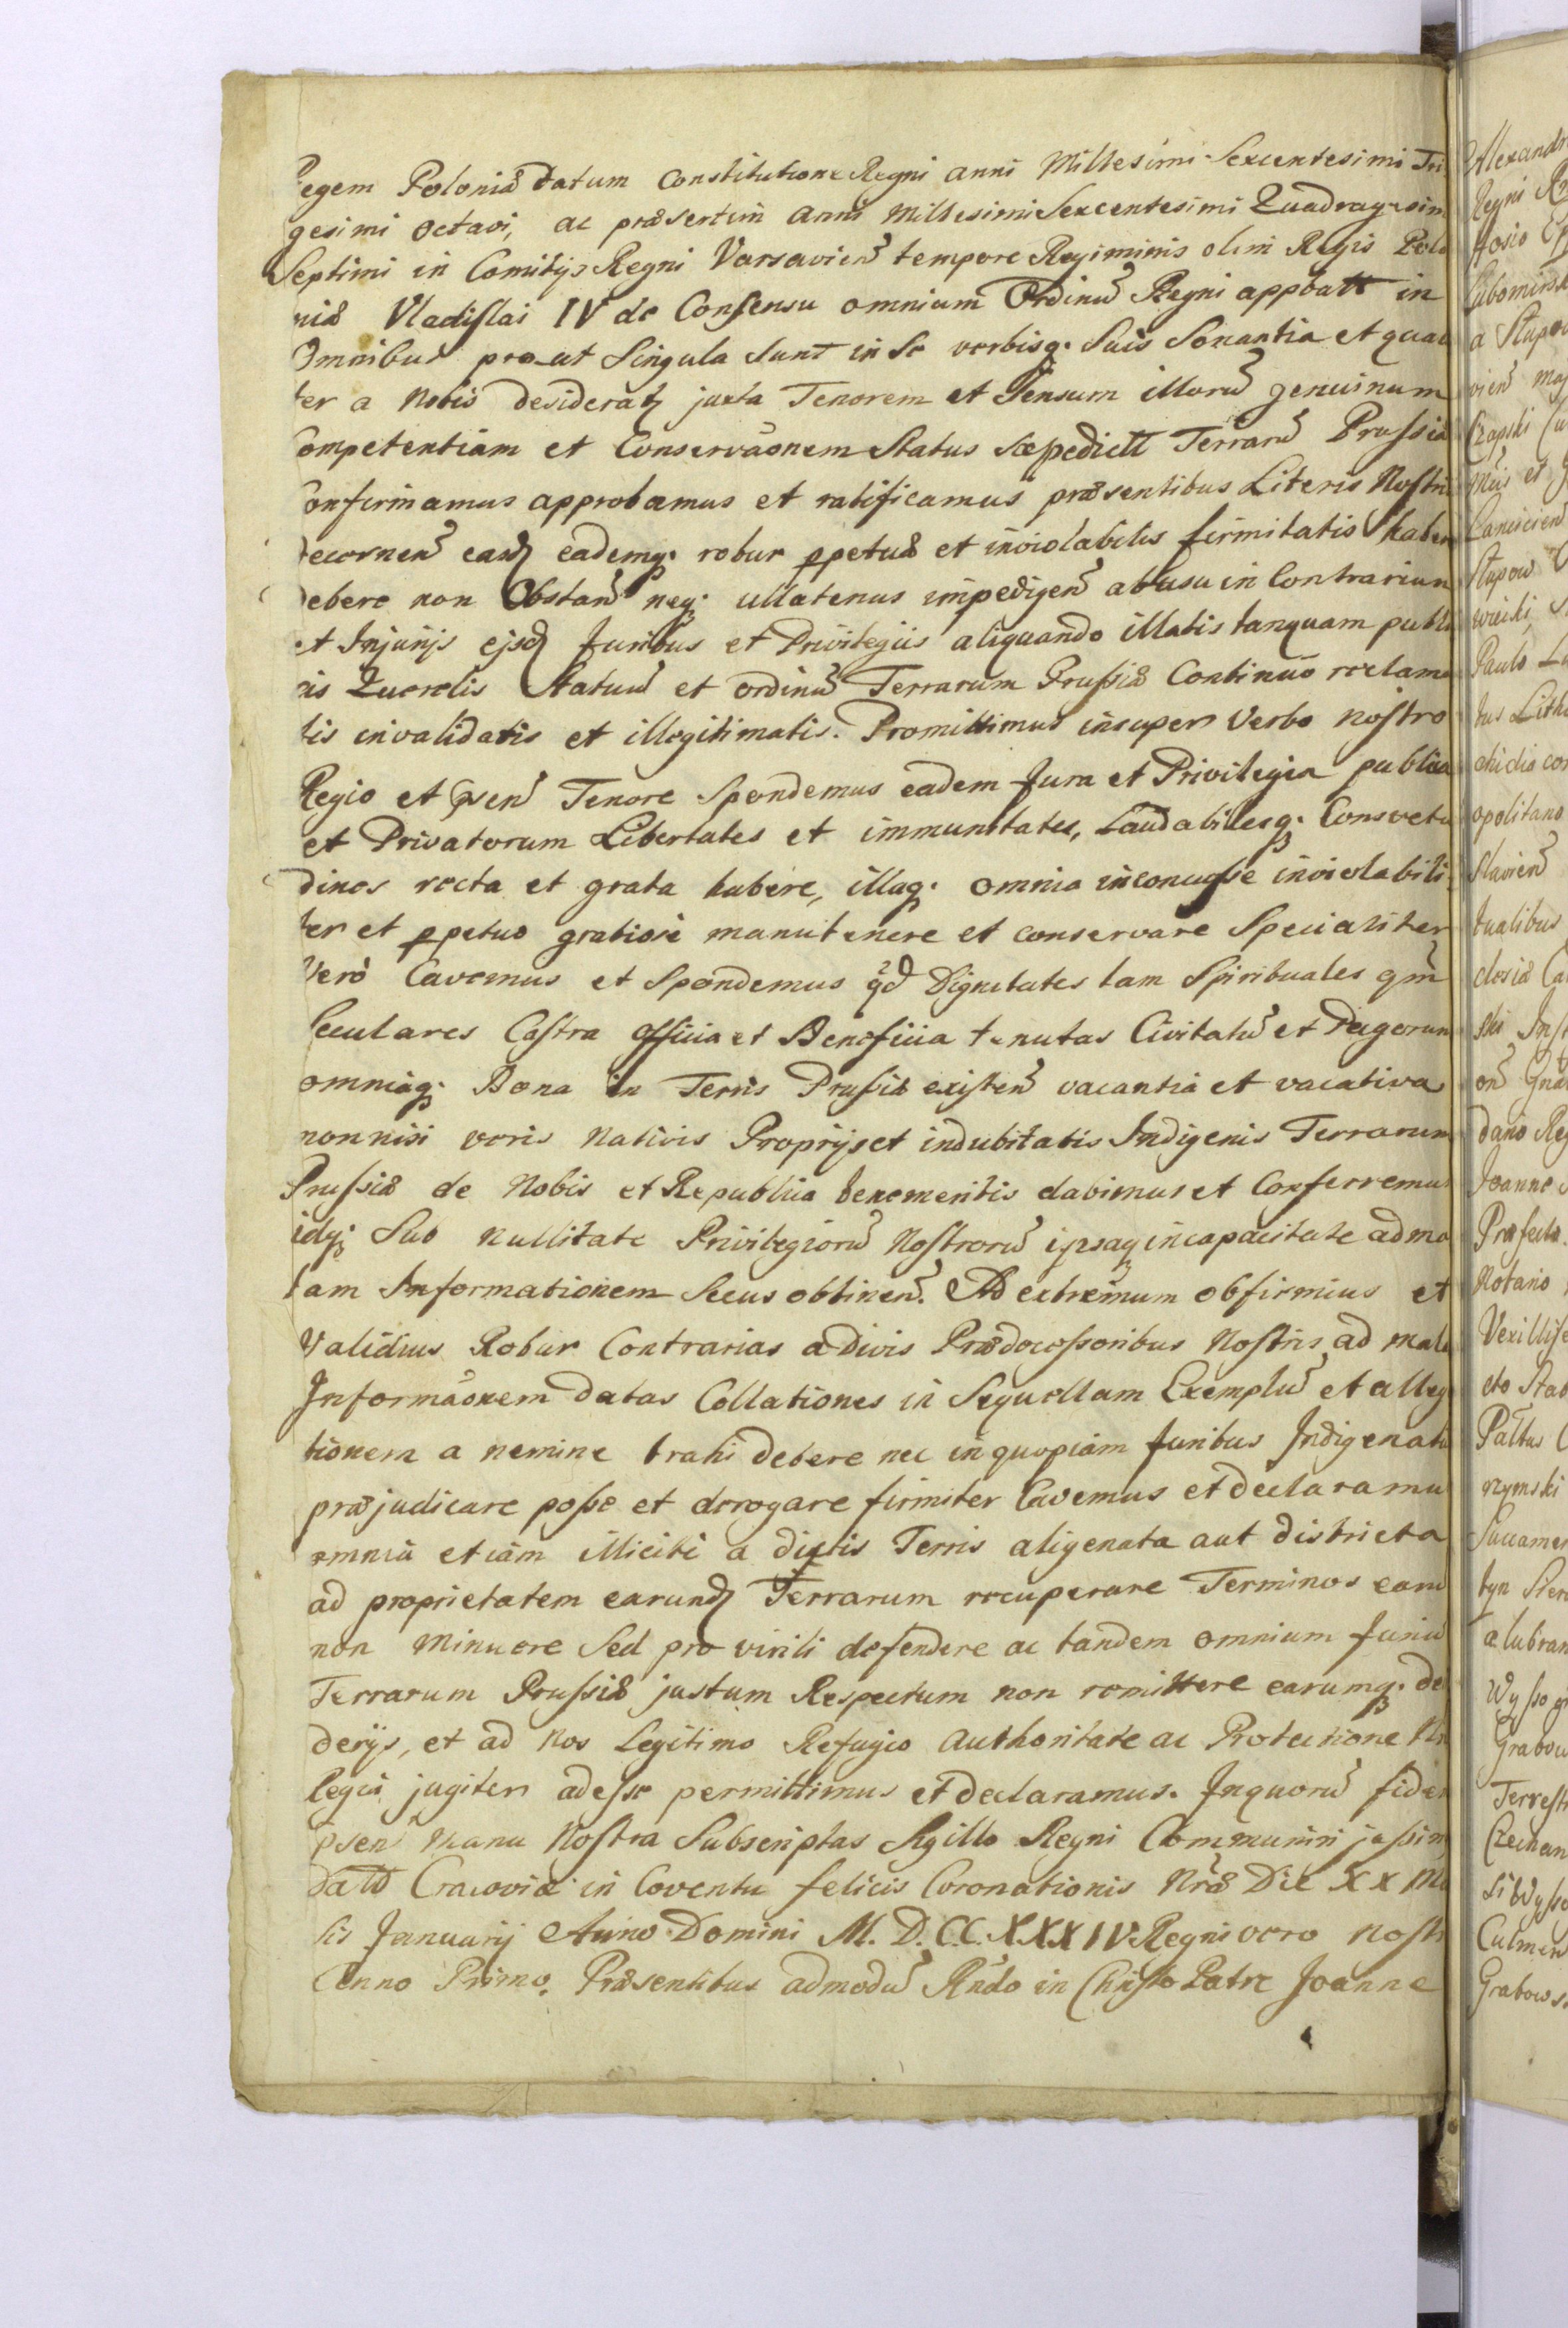 Regem Poloniæ datum Constitutione Regni anni Millesimi Sexcentesimi Tri
gesimi Octavi, ac præsertim anni Millesimi Sexcentesimi Quadragesim
Septimi in Comitijs Regni Varsavien̄ tempore Regiminis olim Regis Polo
niæ Vladislai IV de Consensu omnium Ordinū Regni appbatt in
Omnibus pro-ut Singula Sunt in Se verbisq; Suis Sonantia et quali
ter a Nobis desideratꝫ juxta Tenorem et Sensum illorū genuinum
Competentiam et Conservãonem Status Sæpedictt Terrarū Prussiæ
Confirmamus approbamus et ratificamus præsentibus Literis Nostri
decernen̄ eaꝫ eademq; robur ꝑpetuæ et inviolabilis firmitatis haber
debere non Obstan̄ neq; ullatenus impedien̄ abusu in Contrarium
et Injurijs ejsdꝫ Juribus et Privilegiis aliquando illatis tanquam publi
cis Querelis Statuū et ordinū Terrarum Prussiæ Continuo reclama
tis invalidatis et illegitimatis. Promittimus insuper Verbo nostro
Regio et p̄sen̄ Tenore Spondemus eadem Jura et Privilegia publica
et Privatorum Libertates et immunitates, Laudabilesq; Consvetu
dines recta et grata habere, illaq; omnia inconcusse inviolabili
ter et ꝑpetuo gratiose manutenere et conservare Specialiter
Vero Cavemus et Spondemus qd Dignitates tam Spirituales qm̄
Seculares Castra officia et Beneficia tenutas Civitatū et Pagorum
omniaq; Bona in Terris Prussiæ existen̄ vacantia et vacativa
nonnisi veris Nativis Proprijs et indubitatis Indigenis Terrarum
Prussiæ de Nobis et Republica benemeritis dabimus et Conferremus
idq; Sub nullitate Privilegiorū Nostrorū ipsaq; incapacitate ad ma
lam Informationem Secus obtinen̄. Ad extremum obfirmius et
Validius Robur Contrarias a Divis Prædecessoribus Nostris ad mala
Informãonem datas Collationes in Sequellam Exemplū et alleg
tionem a nemine trahi debere nec in quopiam Juribus Indigenatu
præjudicare posse et derogare firmiter Cavemus et declaramu
omnia etiam illicite a dictis Terris aligenata aut districta
ad proprietatem earundꝫ Terrarum recuperare Terminos earu
non Minuere Sed pro virili defendere ac tandem omnium Juriū
Terrarum Prussiæ justum Respectum non remittere earumq; de
derijs, et ad Nos Legitimo Refugio Authoritate ac Protectione Nr
Regia jugiter adesse permittimus et declaramus. Inquorū fidem
p̄sen̄ Manu Nostra Subscriptas Sigillo Regni Communiri jussim
Datt Cracoviæ in Coventu felicis Coronationis Nræ Die XX Me
sis Januarij Anno Domini M.D.C.C.XXXIV Regni vero Nostri
Anno Primo. Præsentibus admodū Rn̄do in Christo Patre Joanne
Alexandr
Regni
Hosio Ep
Lubomirsk
a Stupow
vien̄ Maj
Czapski Cu
Lanscien̄
Stupow
Paulo
tus Lith
opolitano
Slavien̄
tualibus
clesiæ Ca
ski Inst
dano Reg
Joanne
Præfecto
Notario
Vexillife
Pattus
rzymski
Succamer
a lubran
Wysso
Grabow
Terrestr
Czechan
Culmen
Grabows